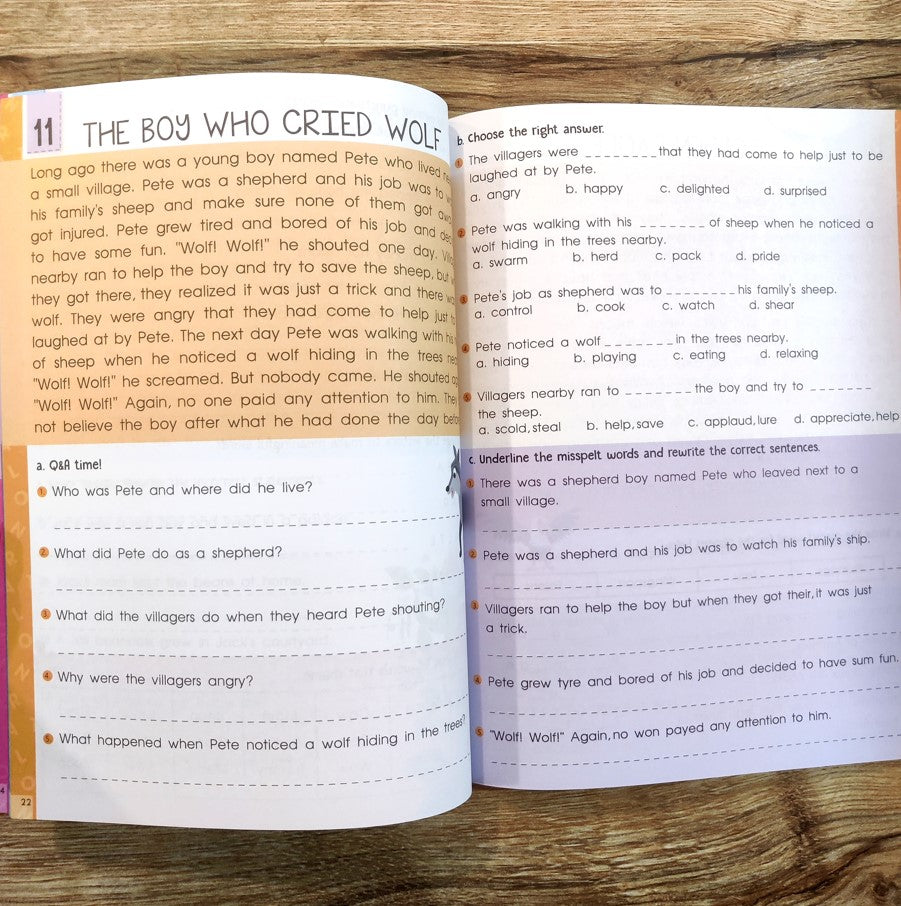 11
THE BOY WHO CRIED WOLF
Long ago there was a young boy named Pete who lived
a small village. Pete was a shepherd and his job was to
his family's sheep and make sure none of them got
got injured. Pete grew tired and bored of his job and
to have some fun. "Wolf! Wolf!" he shouted one day.
nearby ran to help the boy and try to save the sheep, but
they got there, they realized it was just a trick and there
wolf. They were angry that they had come to help just
laughed at by Pete. The next day Pete was walking with
of sheep when he noticed a wolf hiding in the trees
"Wolf! Wolf!" he screamed. But nobody came. He shouted
"Wolf! Wolf!" Again, no one paid any attention to him.
not believe the boy after what he had done the day
a. Q&A time!
1. Who was Pete and where did he live?
2. What did Pete do as a shepherd?
3. What did the villagers do when they heard Pete shouting?
4. Why were the villagers angry?
5. What happened when Pete noticed a wolf hiding in the trees?
22
b. Choose the right answer.
1. The villagers were ________that they had come to help just to be
laughed at by Pete.
a. angry b. happy c. delighted d. surprised
2. Pete was walking with his _______ of sheep when he noticed a
wolf hiding in the trees nearby.
a. swarm b. herd c. pack d. pride
3. Pete's job as shepherd was to ________ his family's sheep.
a. control b. cook c. watch d. shear
4. Pete noticed a wolf ________ in the trees nearby.
a. hiding b. playing c. eating d. relaxing
5. Villagers nearby ran to _______ the boy and try to _______
the sheep.
a. scold, steal b. help, save c. applaud, lure d. appreciate, help
c. Underline the misspelt words and rewrite the correct sentences.
1. There was a shepherd boy named Pete who leaved next to a
small village.
2. Pete was a shepherd and his job was to watch his family's ship.
3. Villagers ran to help the boy but when they got their, it was just
a trick.
4. Pete grew tyre and bored of his job and decided to have sum fun.
5. "Wolf! Wolf!" Again, no won payed any attention to him.